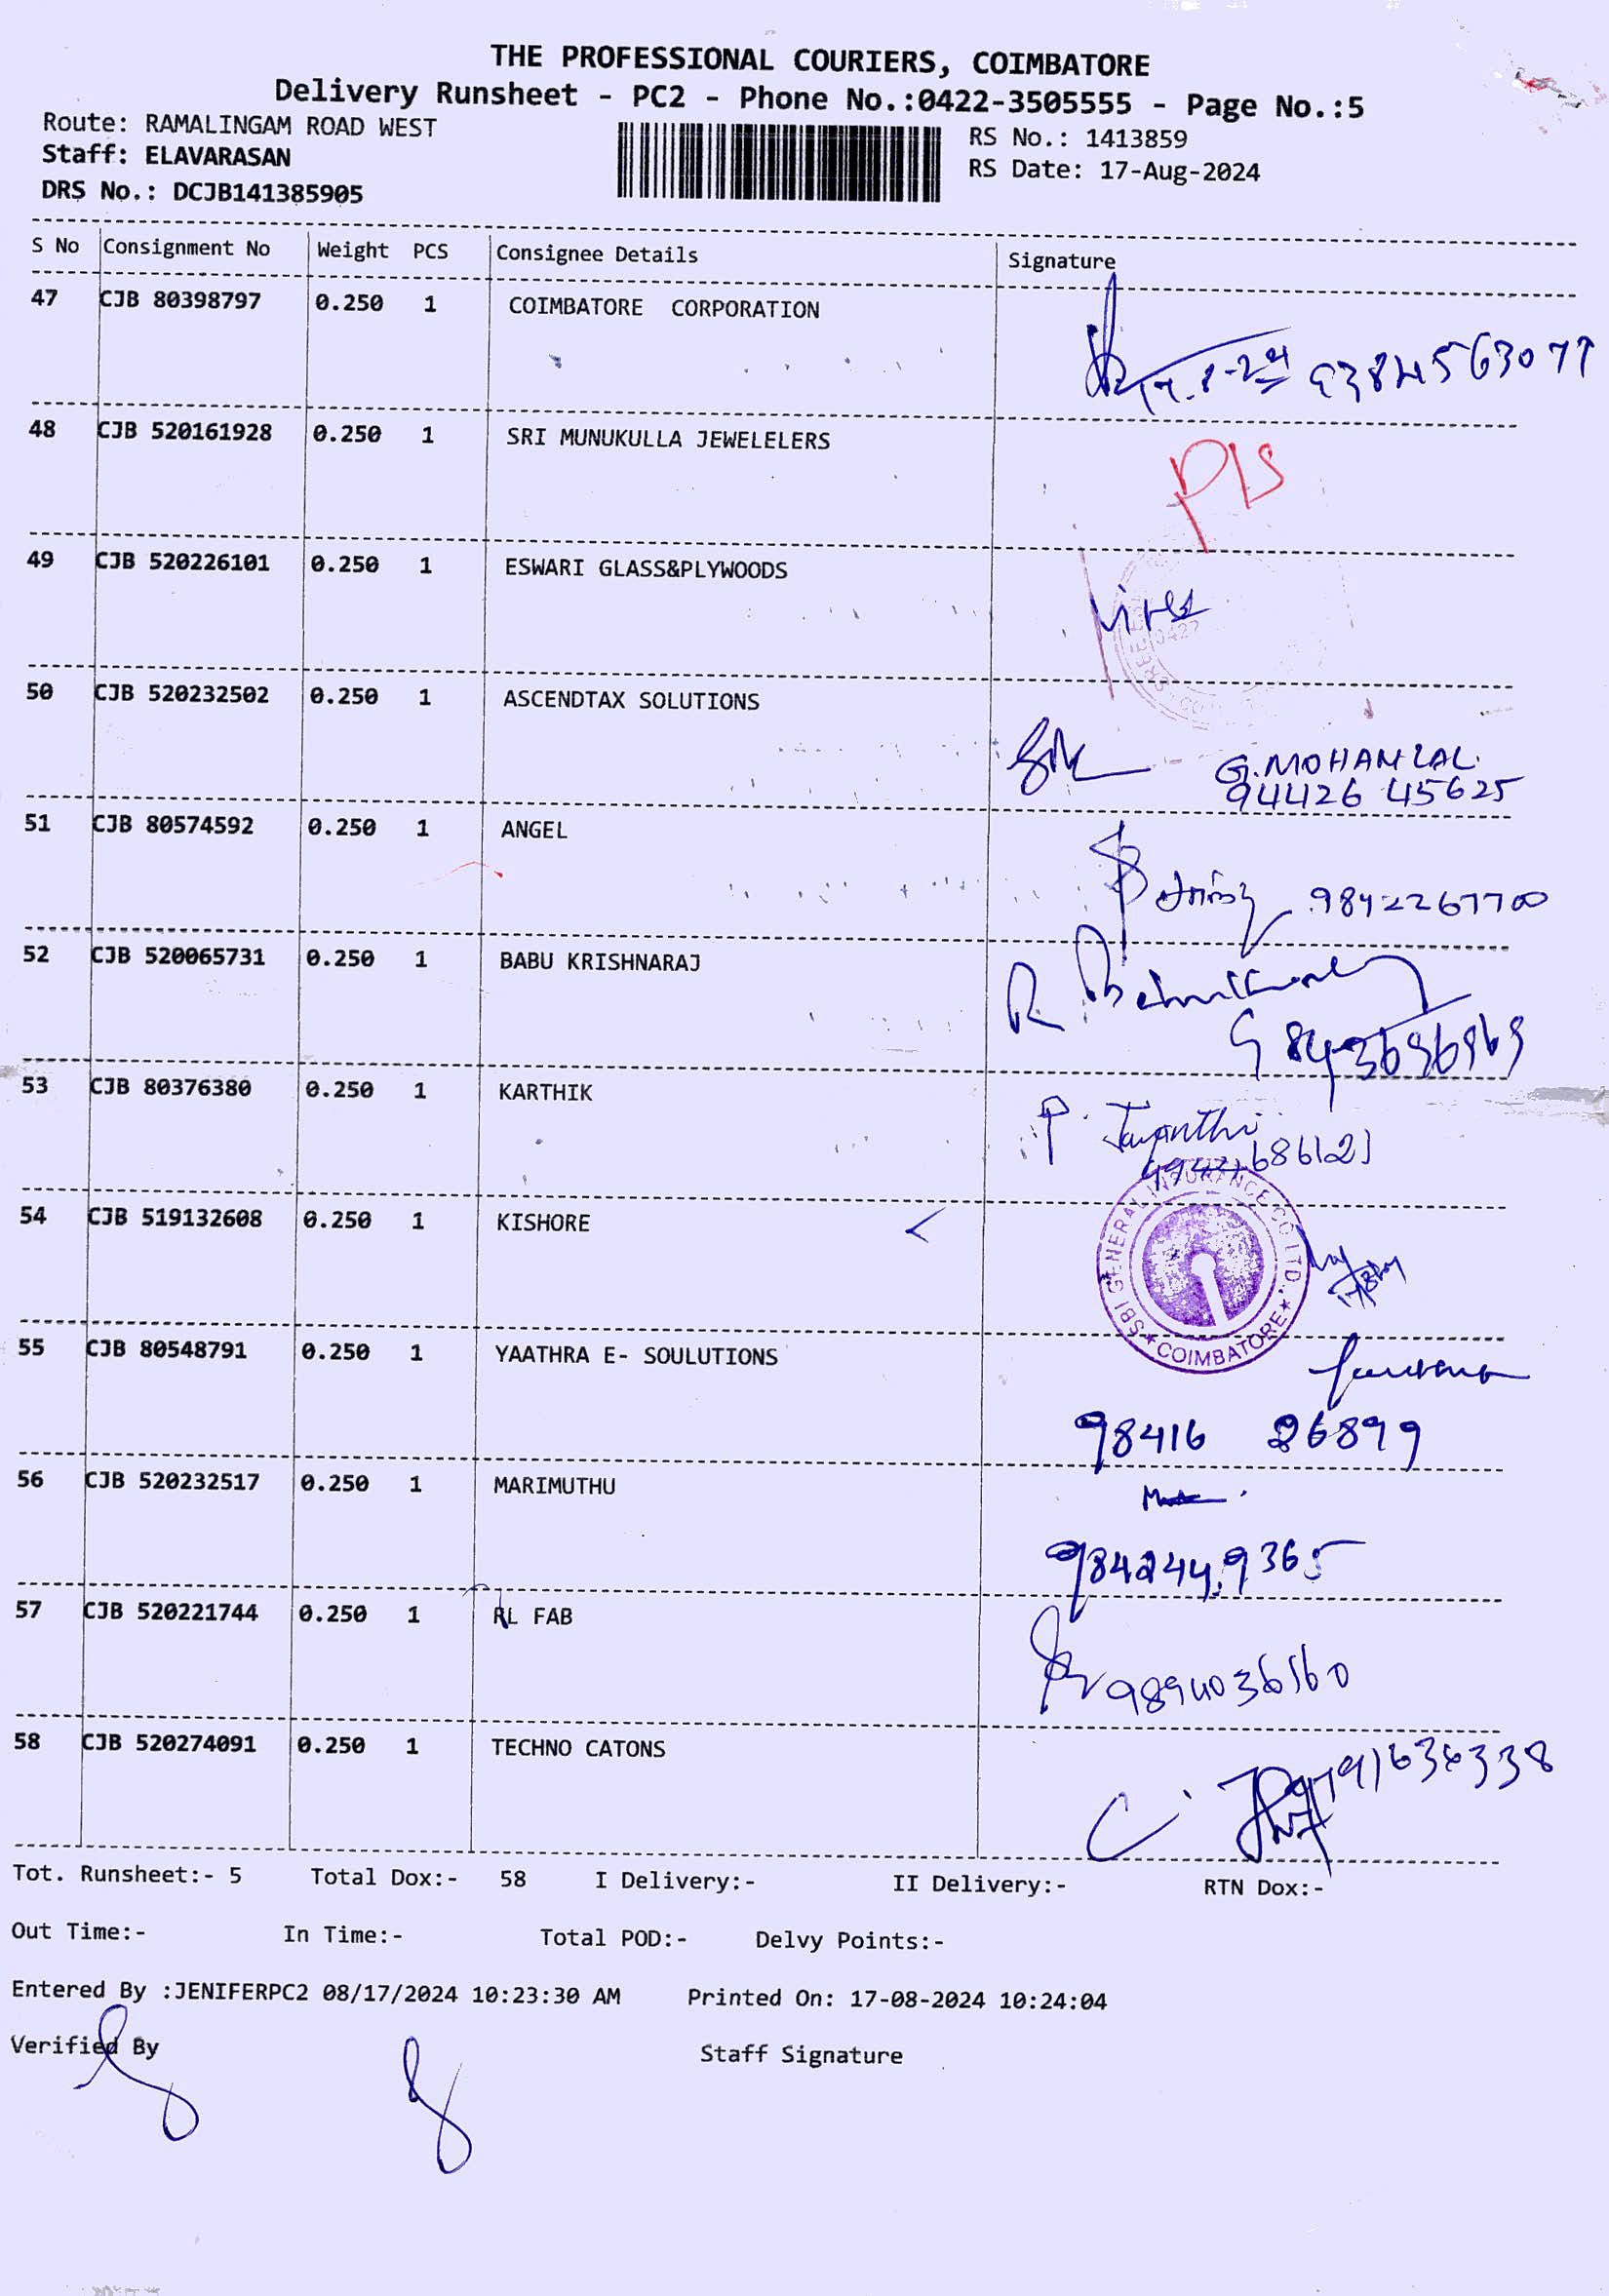 THE PROFESSIONAL COURIERS, COIMBATORE
Delivery Runsheet - PC2 - Phone No.:0422-3505555 - Page No.:5
Route: RAMALINGAM ROAD WEST
RS No.: 1413859
Staff: ELAVARASAN
RS Date: 17-Aug-2024
DRS No.: DCJB141385905
S No Consignment No Weight PCS Consignee Details Signature
47 CJB 80398797 0.250 1 COIMBATORE CORPORATION
9384563077
48 CJB 520161928 0.250 1 SRI MUNUKULLA JEWELELERS
P/S
49 CJB 520226101 0.250 1 ESWARI GLASS&PLYWOODS
50 CJB 520232502 0.250 1 ASCENDTAX SOLUTIONS
G.MOHANLAL.
94426 45625
51 CJB 80574592 0.250 1 ANGEL
9842267700
52 CJB 520065731 0.250 1 BABU KRISHNARAJ
53 CJB 80376380 0.250 1 KARTHIK
P. Jayanthi
54 CJB 519132608 0.250 1 KISHORE
SBI GENERAL INSURANCE CO LTD.
COIMBATORE
55 CJB 80548791 0.250 1 YAATHRA E- SOULUTIONS
98416 26899
56 CJB 520232517 0.250 1 MARIMUTHU
9842449365
57 CJB 520221744 0.250 1 RL FAB
9894036160
58 CJB 520274091 0.250 1 TECHNO CATONS
9791636338
Tot. Runsheet:- 5 Total Dox:- 58 I Delivery:- II Delivery:- RTN Dox:-
Out Time:- In Time:- Total POD:- Delvy Points:-
Entered By :JENIFERPC2 08/17/2024 10:23:30 AM Printed On: 17-08-2024 10:24:04
Verified By Staff Signature